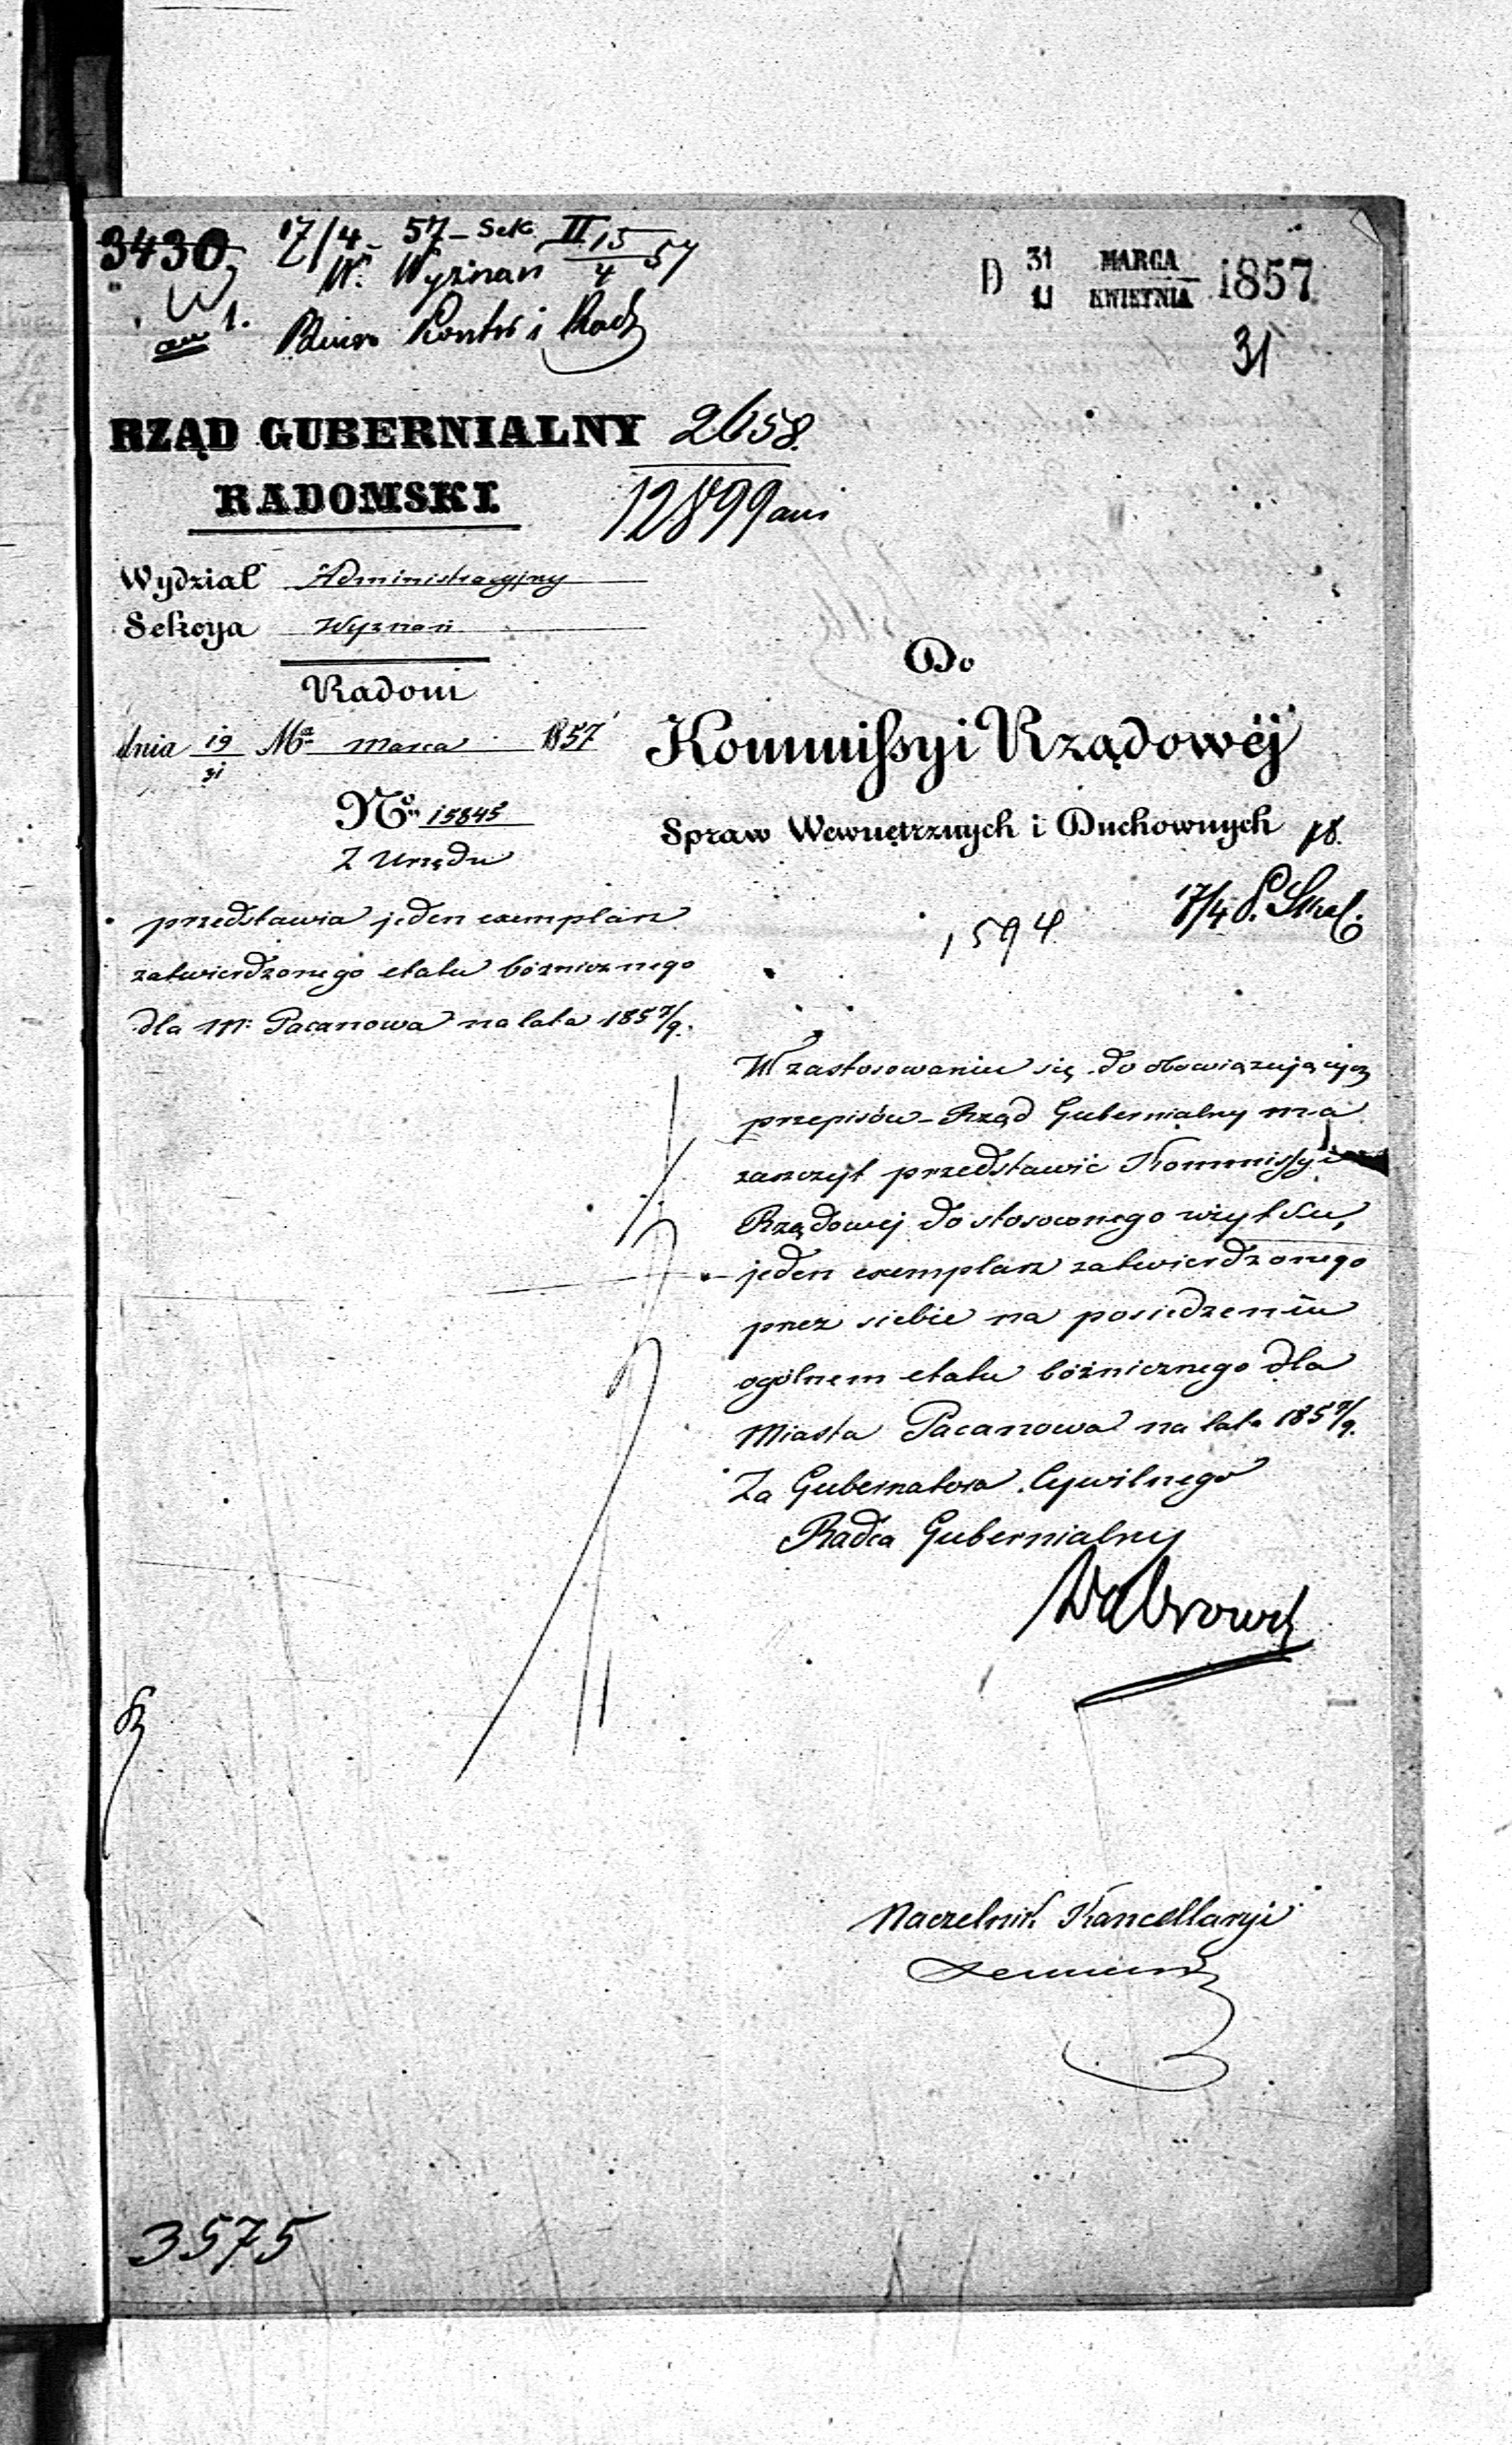 3430 17/4 - 57 - Sek. II 15/4 57
W. Wyznań
1. Biuro Kontr i Rach
D 31 MARCA / KWIETNIA 1857
31
RZĄD GUBERNIALNY 2658.
RADOMSKI. 12899
Wydział Administracyjny
Sekcya Wyznań
Radom
dnia 19/31 Mca Marca 1857
No. 15845
Z Urzędu
przedstawia jeden exemplarz
zatwierdzonego etatu bóżnicznego
dla m: Pacanowa na lata 1857/9.
Do
Kommissyi Rządowéj
Spraw Wewnętrznych i Duchownych
17/4
1594
W zastosowaniu się do obowiązujących
przepisów - Rząd Gubernialny ma
zaszczyt przedstawić Kommissyi
Rządowej do stosownego użytku,
jeden exemplarz zatwierdzonego
przez siebie na posiedzeniu
ogólnem etatu bóżnicznego dla
Miasta Pacanowa na lata 1857/9.
Za Gubernatora Cywilnego
Radca Gubernialny
Naczelnik Kancellaryi
3575